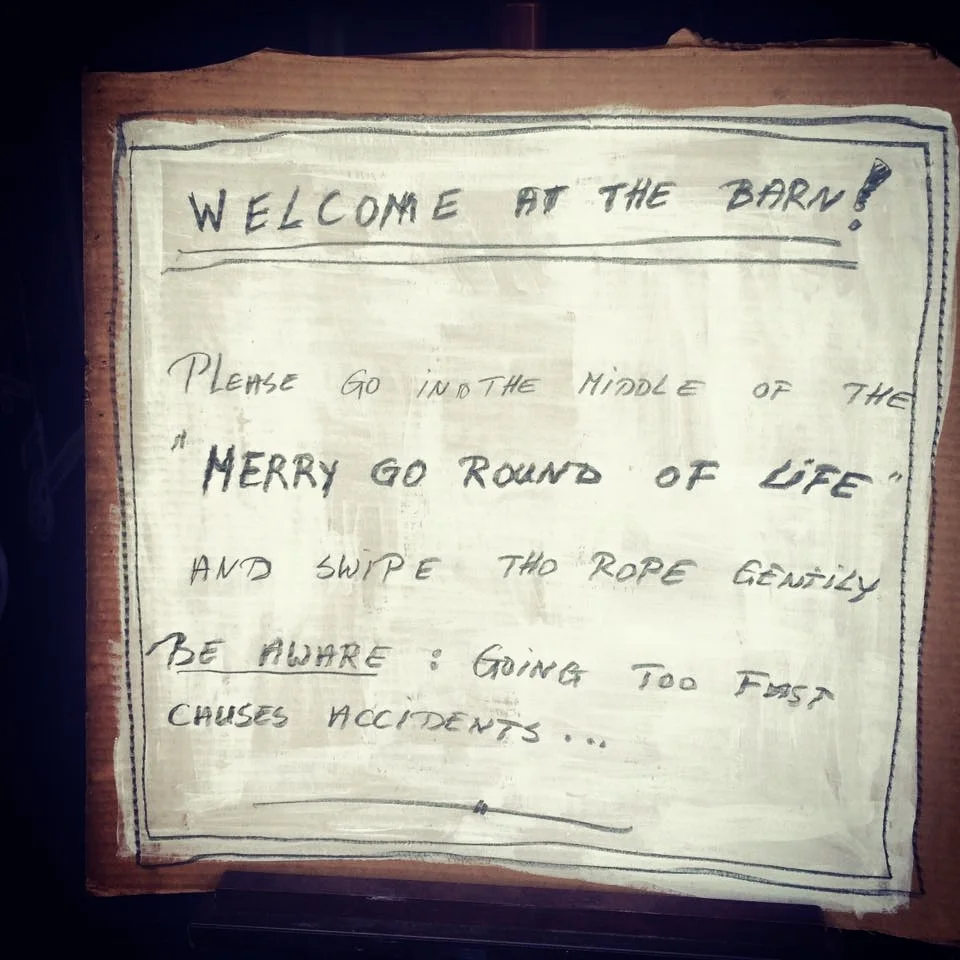 WELCOME AT THE BARN!
PLEASE GO IN THE MIDDLE OF THE
"MERRY GO ROUND OF LIFE"
AND SWIPE THO ROPE GENTILY
BE AWARE : GOING TOO FAST
CAUSES ACCIDENTS ...